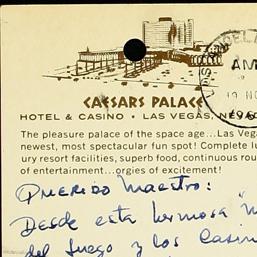 CAESARS PALACE
HOTEL & CASINO • LAS VEGAS, NEVAD
The pleasure palace of the space age...Las Vega
newest, most spectacular fun spot! Complete lu
ury resort facilities, superb food, continuous rou
of entertainment...orgies of excitement!
AM
196
Querido Maestro:
Desde esta hermosa
del fuego y los Casin